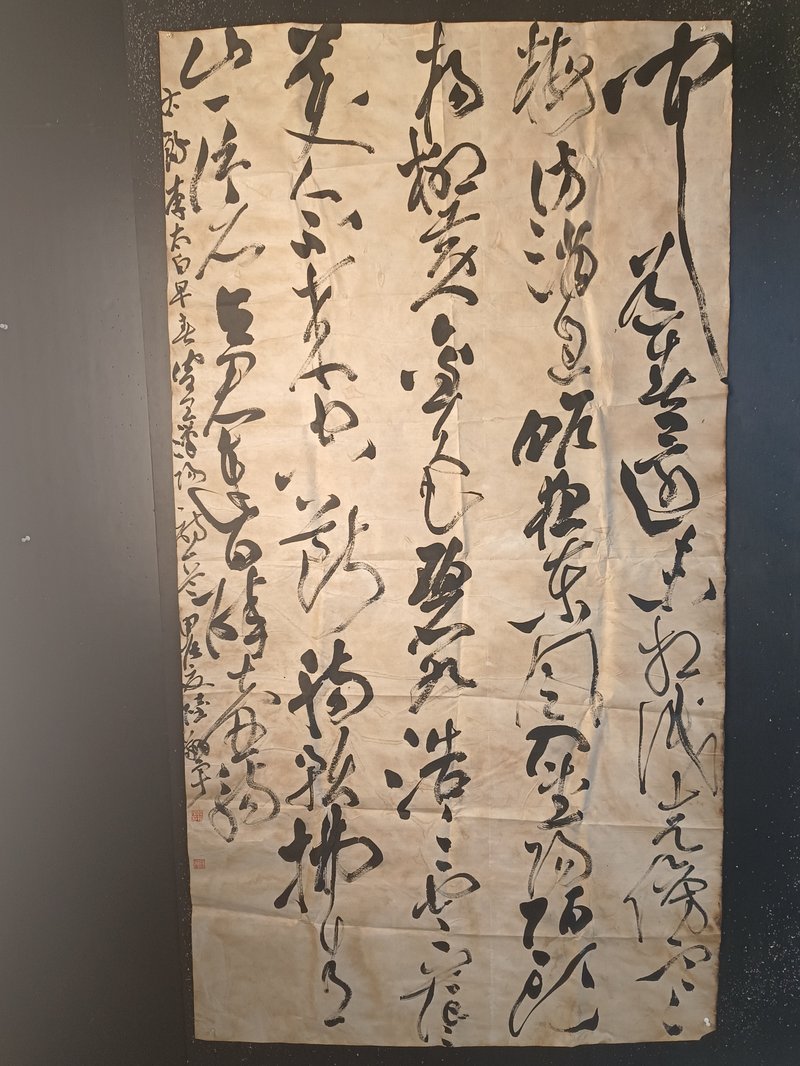 聞道春還未相識走傍寒
梅访消息昨夜東風入武陽陌頭
楊柳黄金色碧水浩浩雲茫茫
美人不來空斷腸預拂青
山一片石與君連日醉壺觴
李太白早春寄王漢陽詩一首甲辰夏